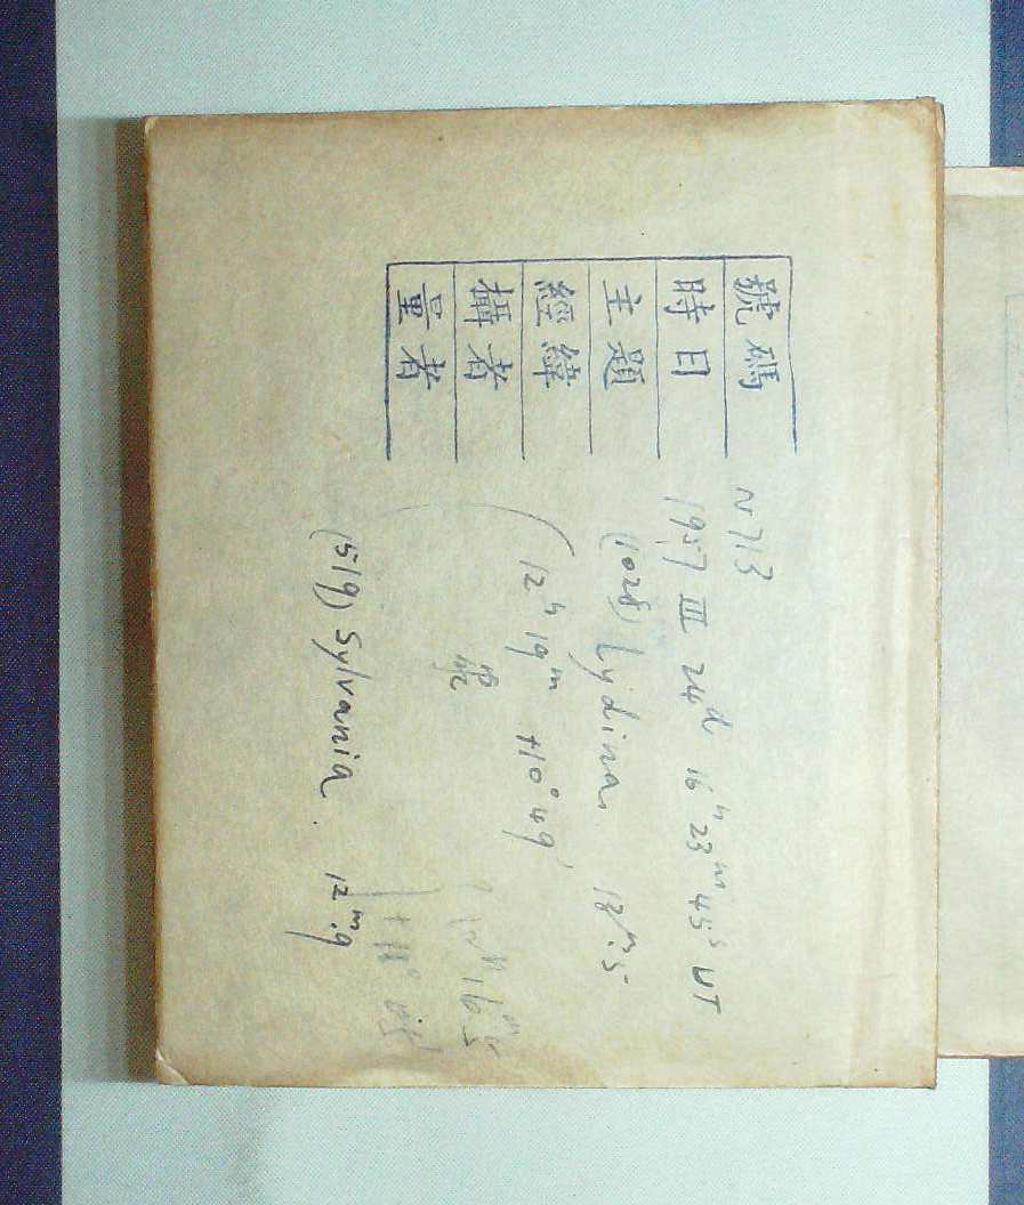 號碼 N713
時日 1957 III 24ᵈ 16ʰ 23ᵐ 45ˢ UT
主題 (1028) Lydina 13ᵐ.5
經緯 (12ʰ 19ᵐ +10° 49′
攝者
量者
(519) Sylvania 12ᵐ.9